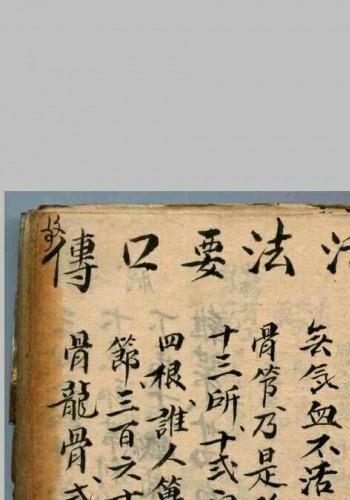 法要口傳
無気血不活
骨節乃是
十三所、十弐
四根、誰人
節三百六十
骨龍骨